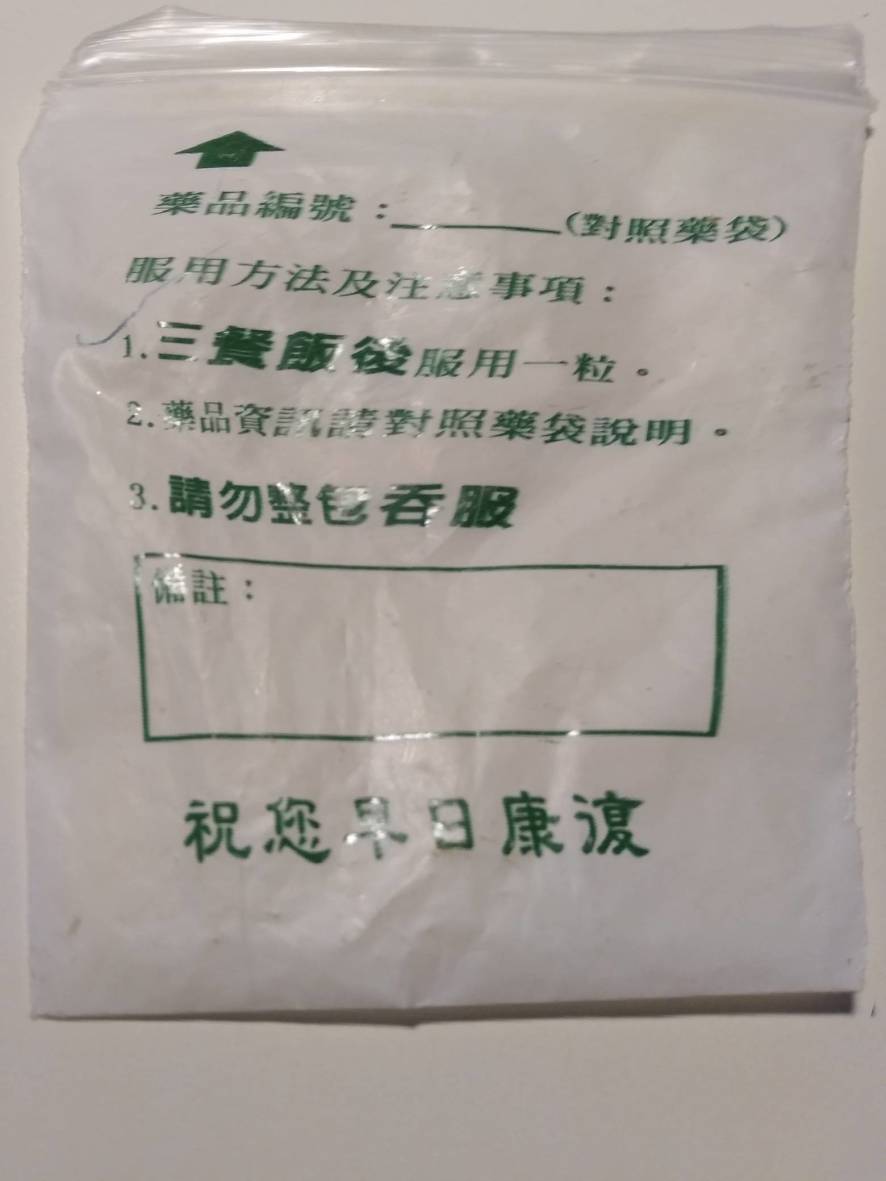 藥品編號：______(對照藥袋)
服用方法及注意事項：
1.三餐飯後服用一粒。
2.藥品資訊請對照藥袋說明。
3.請勿整包吞服
備註：
祝您早日康復